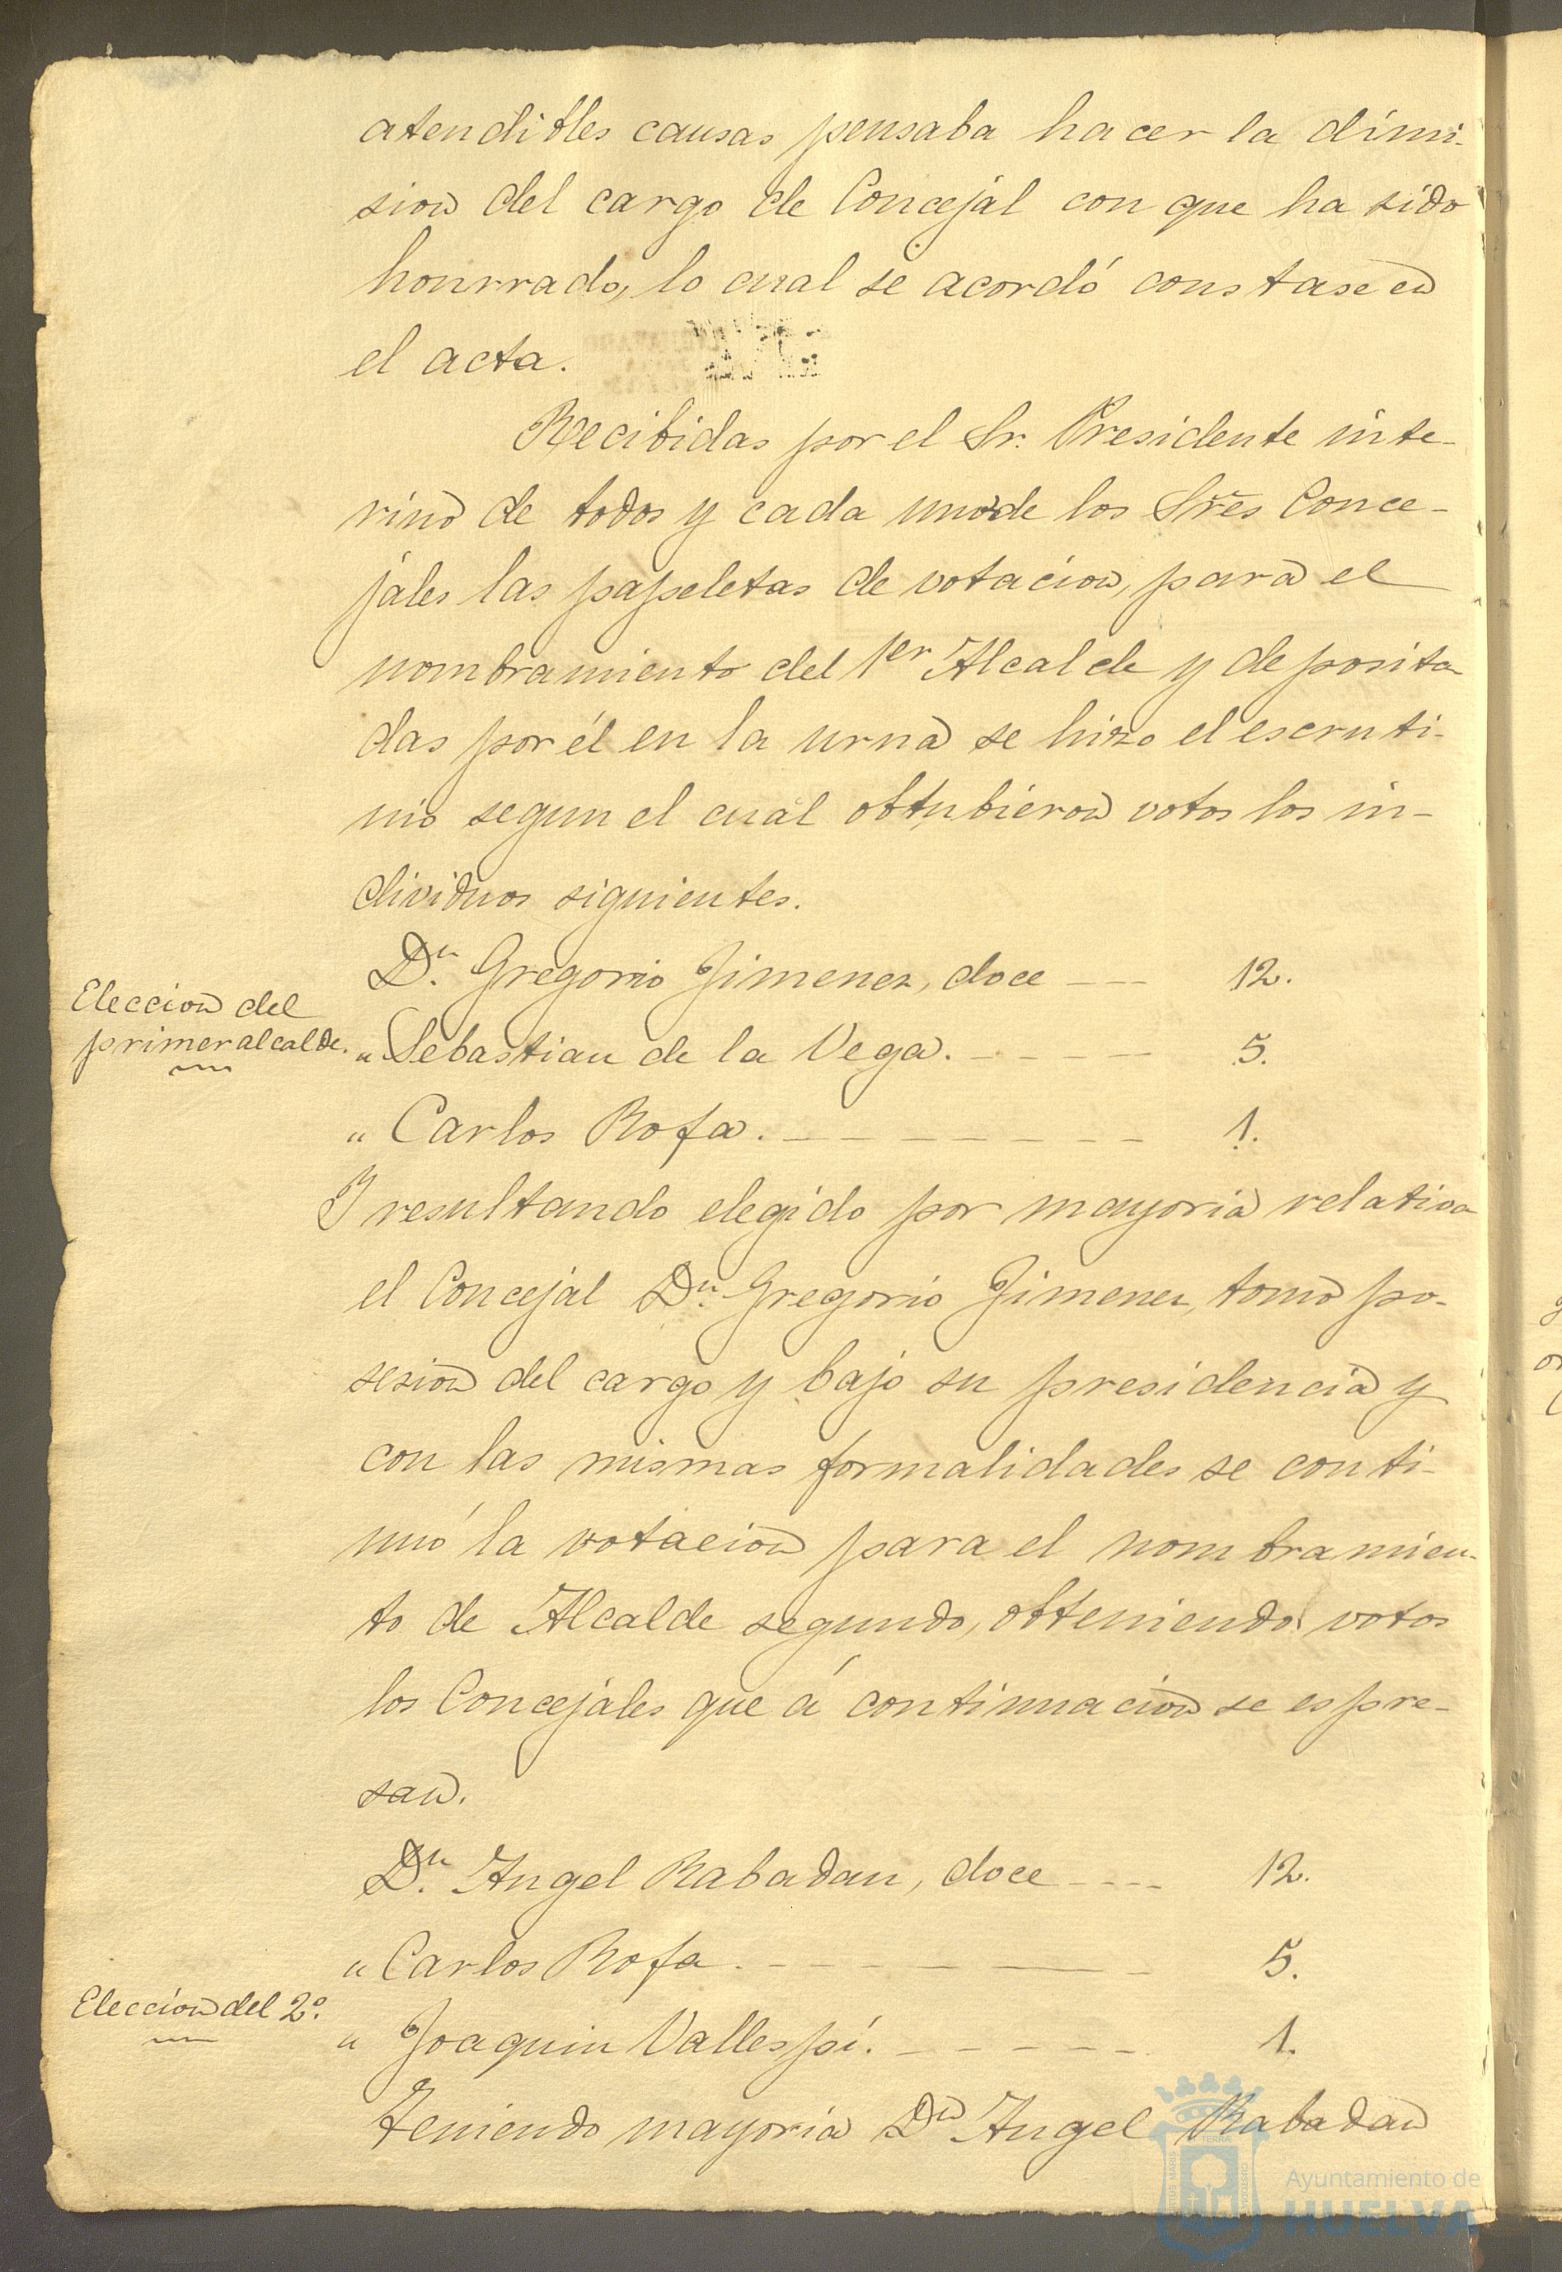 atendibles causas pensaba hacer la dimi-
sion del cargo de Concejal con que ha sido
honrrado, lo cual se acordó constase en
el acta.
Recibidas por el Sr. Presidente inte-
rino de todos y cada uno de los Sres Conce-
jales las papeletas de votacion, para el
nombramiento del 1er Alcalde y deposita
das por él en la urna se hizo el escruti-
nio segun el cual obtubieron votos los in-
dividuos siguientes.
Dn. Gregorio Jimenez, doce --- 12.
Eleccion del
primer alcalde.
" Sebastian de la Vega. ----- 5.
" Carlos Rofa. -------- 1.
Y resultando elegido por mayoria relativa
el Concejal Dn. Gregorio Jimenez, tomó po-
sesion del cargo y bajo su presidencia y
con las mismas formalidades se conti-
nuó la votacion para el nombramien-
to de Alcalde segundo, obteniendo votos
los Concejales que á continuacion se espre-
san.
Dn. Angel Rabadan, doce ---- 12.
" Carlos Rofa. ------- 5.
Eleccion del 2º.
" Joaquin Vallespí. ----- 1.
Teniendo mayoria Dn Angel Rabadan
Ayuntamiento de
HUELVA